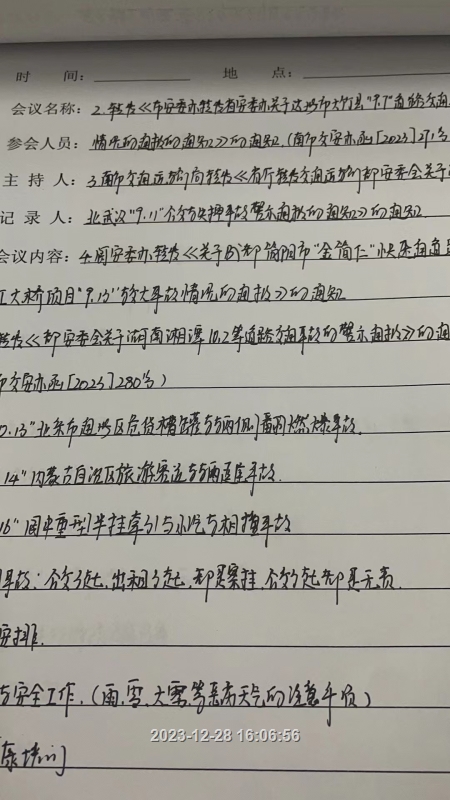 时 间: 地 点:
会议名称: 2.转发《市安委办转发省安委办关于达州市大竹县"9.7"道路交通
参会人员: 情况的通报的通知》的通知.(南市交安办函[2023]271号
主 持 人: 3.南市交通运输局转发《省厅转发交通运输部安委会关于
记 录 人: 北武汉"9.11" 警示通报的通知》的通知
会议内容: 4.阆安委办转发《关于成都简阳市"金简仁"快速通道
江大桥项目"9.13"较大事故情况的通报》的通知
转发《部安委会关于湖南湘潭10.2等道路交通事故的警示通报》的通
市交安办函[2023]280号)
0.13"北京市通州区危货槽罐车辆侧翻燃爆事故.
14"内蒙古自治区旅游客运车辆追尾事故.
16"阆中重型半挂牵引与小汽车相撞事故
事故:
安排.
与安全工作.(雨.雪.大雾等恶劣天气的注意事项)
2023-12-28 16:06:56